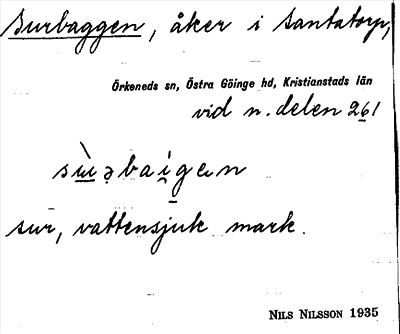 Surbaggen, åker i Santatorp,
Örkeneds sn, Östra Göinge hd, Kristianstads län
vid n. delen 261
sur, vattensjuk mark.
NILS NILSSON 1935